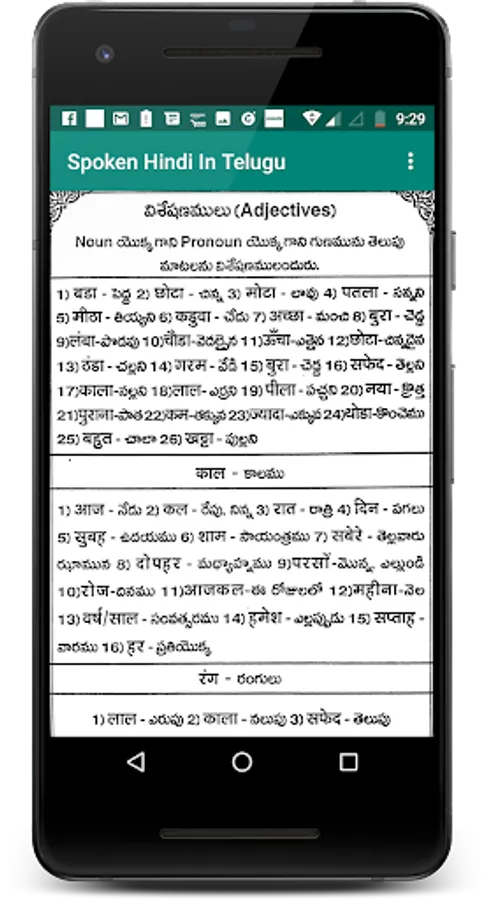 9:29
Spoken Hindi In Telugu
విశేషణములు (Adjectives)
Noun యొక్క గాని Pronoun యొక్క గాని గుణమును తెలుపు
మాటలను విశేషణములందురు.
1) बडा - పెద్ద 2) छोटा - చిన్న 3) मोटा - లావు 4) पतला - సన్నని
5) मीठा - తియ్యని 6) कडुवा - చేదు 7) अच्छा - మంచి 8) बुरा - చెడ్డ
9)लंबा-పొడవు 10)चौडा-వెడల్పైన 11)ऊँचा-ఎత్తైన 12)छोटा-చిన్నదైన
13) ठंडा - చల్లని 14) गरम - వేడి 15) बुरा - చెడ్డ 16) सफेद - తెల్లని
17)काला-నల్లని 18)लाल-ఎర్రని 19) पीला - పచ్చని 20) नया - క్రొత్త
21)पुराना-పాత 22)कम-తక్కువ 23)ज्यादा-ఎక్కువ 24)थोडा-కొంచెము
25) बहुत - చాలా 26) खट्टा - పుల్లని
काल - కాలము
1) आज - నేడు 2) कल - రేపు, నిన్న 3) रात - రాత్రి 4) दिन - పగలు
5) सुबह - ఉదయము 6) शाम - సాయంత్రము 7) सबेरे - తెల్లవారు
ఝామున 8) दोपहर - మధ్యాహ్నము 9)परसों-మొన్న, ఎల్లుండి
10)रोज-దినము 11)आजकल-ఈ రోజులలో 12)महीना-నెల
13) वर्ष/साल - సంవత్సరము 14) हमेश - ఎల్లప్పుడు 15) सप्ताह -
వారము 16) हर - ప్రతియొక్క
रंग - రంగులు
1) लाल - ఎరుపు 2) काला - నలుపు 3) सफेद - తెలుపు